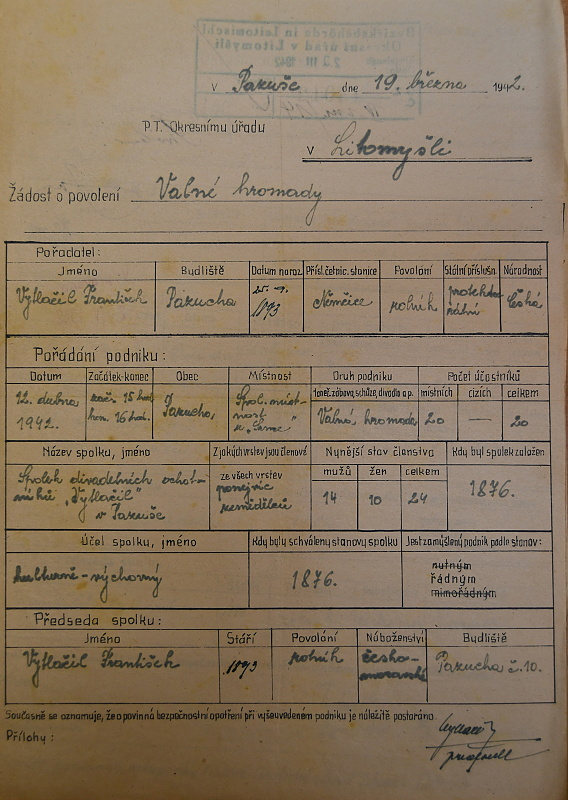 Bezirksbehörde in Leitomischl
Okresní úřad v Litomyšli
III 1942
v Pazuše dne 19. března 1942.
P.T. Okresnímu úřadu
v Litomyšli
Žádost o povolení Valné hromady
Pořadatel:
Jméno Bydliště Datum naroz. Přísl.četnic. stanice Povolání Státní přísluš. Národnost
Vytlačil František Pazucha 1893 Němčice rolník protektorátní česká
Pořádání podniku:
Datum Začátek-konec Obec Místnost Druh podniku Počet účastníků
taneč. zábava, schůze, divadlo a p. místních cizích celkem
12. dubna 1942. zač. 15 hod. kon. 16 hod. Pazucha, Spol. místnost Valná hromada 20 20
Název spolku, jméno Z jakých vrstev jsou členové Nynější stav členstva Kdy byl spolek založen
mužů žen celkem
Spolek divadelních ochotníků „Vytlačil“ v Pazuše ze všech vrstev ponejvíc zemědělců 14 10 24 1876.
Účel spolku, jméno Kdy byly schváleny stanovy spolku Jest zamýšlený podnik podle stanov:
kulturně-výchovný 1876. nutným
řádným
mimořádným
Předseda spolku:
Jméno Stáří Povolání Náboženství Bydliště
Vytlačil František 1893 rolník českomoravské Pazucha č. 10.
Současně se oznamuje, že o povinná bezpečnostní opatření při výše uvedeném podniku je náležitě postaráno.
Přílohy: